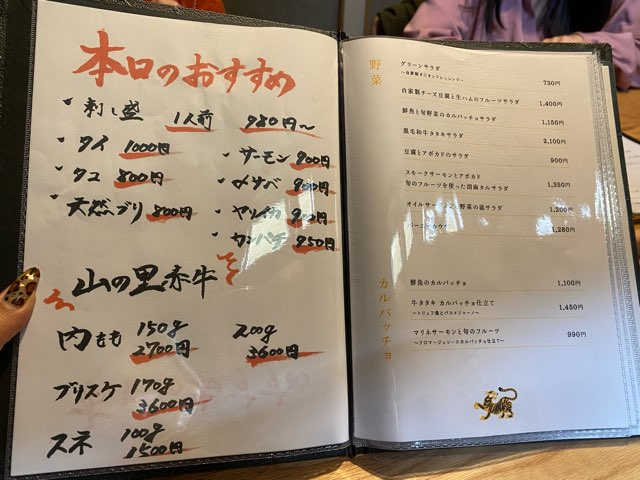 本日のおすすめ
刺し盛 1人前 980円～
タイ 1000円
タコ 800円
天然ブリ 800円
サーモン 900円
〆サバ 900円
ヤリイカ 900円
カンパチ 950円
山の里赤牛
内もも 150g 2700円
200g 3600円
ブリスケ 170g 3600円
スネ 100g 1500円
野菜
グリーンサラダ 730円
～自家製オニオンドレッシング～
自家製チーズ豆腐と生ハムのフルーツサラダ 1,400円
鮮魚と旬野菜のカルパッチョサラダ 1,150円
黒毛和牛タタキサラダ 2,100円
豆腐とアボカドのサラダ 900円
スモークサーモンとアボカド
旬のフルーツを使った胡麻タルサラダ 1,350円
オイルサーモン 野菜の温サラダ 1,200円
1,280円
カルパッチョ
鮮魚のカルパッチョ 1,100円
牛タタキ カルパッチョ仕立て 1,450円
～トリュフ塩とパルメジャーノ～
マリネサーモンと旬のフルーツ 990円
～フロマージュソースカルパッチョ仕立て～